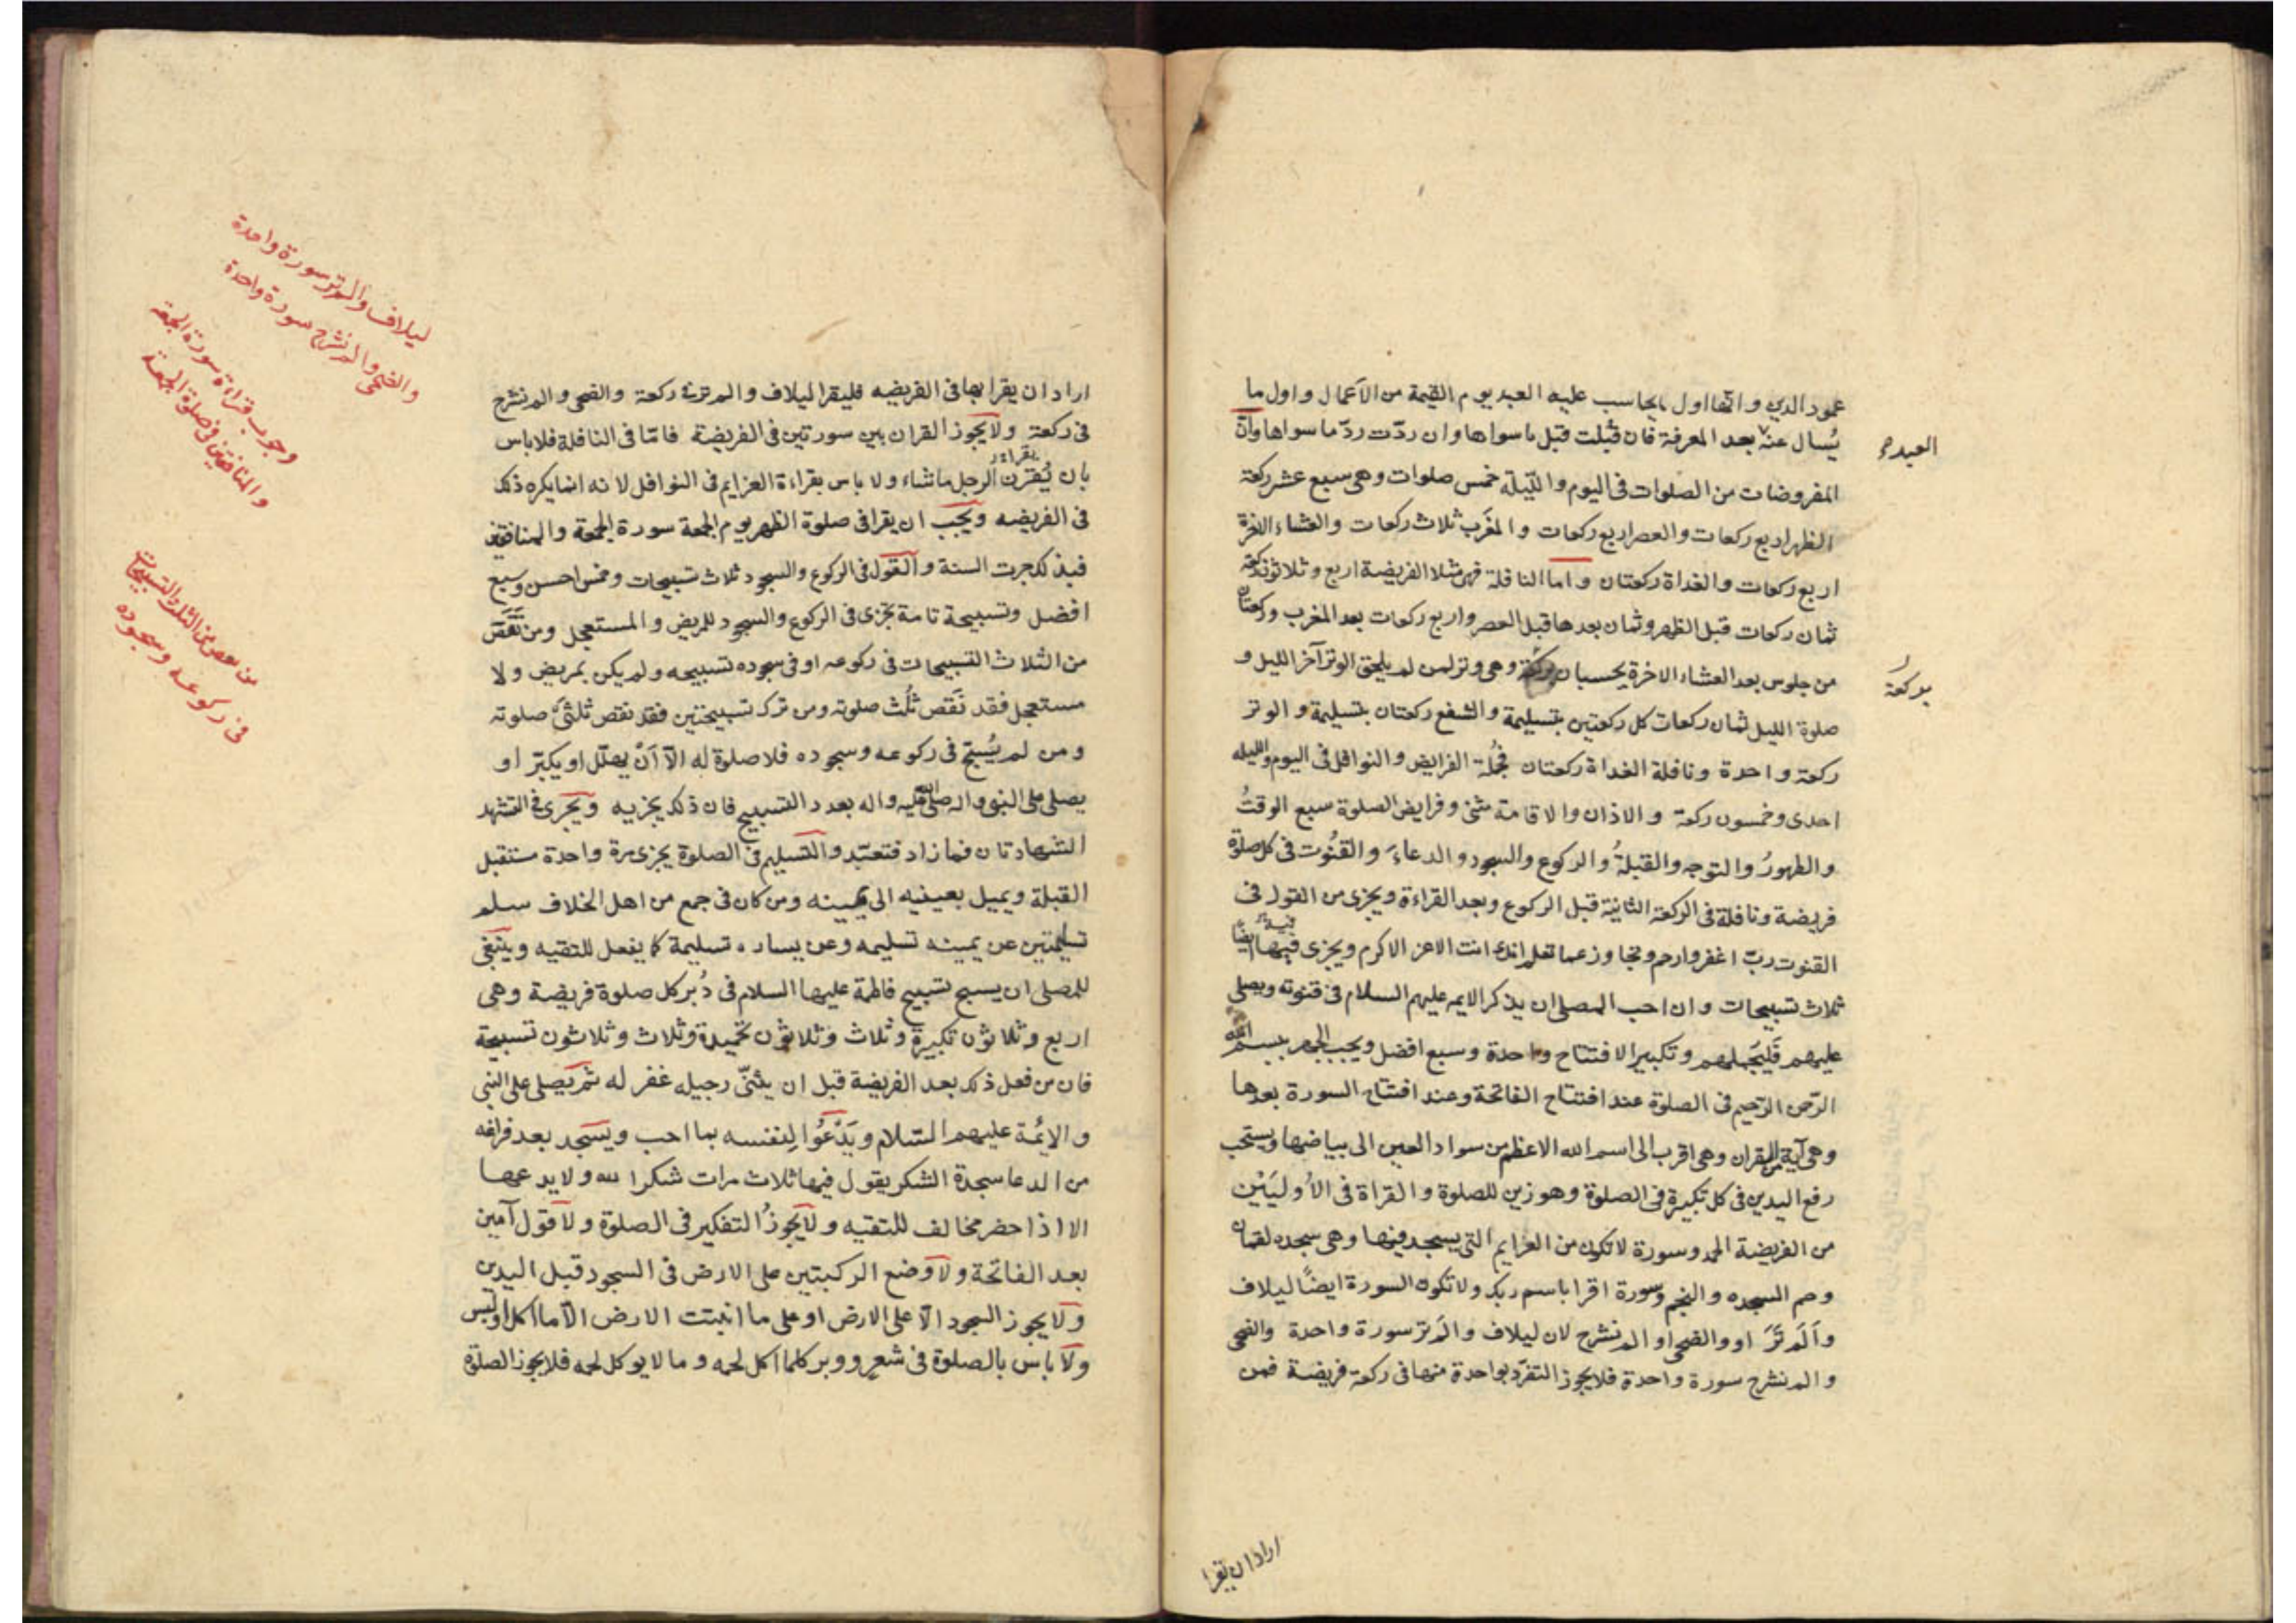 عمود الدين وانها اول ما يحاسب عليه العبد يوم القيمة من الاعمال واول ما
يُسال عنه بعد المعرفة فان قُبلت قبل ما سواها وان ردّت ردّ ما سواها وانّ
العبد
المفروضات من الصلوات فى اليوم والليلة خمس صلوات وهى سبع عشر ركعة
الظهر اربع ركعات والعصر اربع ركعات والمغرب ثلاث ركعات والعشاء الاخرة
اربع ركعات والغداة ركعتان واما النافلة فهى مثلا الفريضة اربع وثلاثون ركعة
ثمان ركعات قبل الظهر وثمان بعدها قبل العصر واربع ركعات بعد المغرب وركعتان
من جلوس بعد العشاء الاخرة يحسبان بركعة وهى وتر لمن لم يلحق الوتر آخر الليل و
بركعة
صلوة الليل ثمان ركعات كل ركعتين بتسليمة والشفع ركعتان بتسليمة والوتر
ركعة واحدة ونافلة الغداة ركعتان فجُملة الفرايض والنوافل فى اليوم والليله
احدى وخمسون ركعة والاذان والاقامة مثنى وفرايض الصلوة سبع الوقتُ
والطهورُ والتوجه والقبلةُ والركوع والسجود والدعاءَ والقنُوت فى كل صلوة
فريضة ونافلة فى الركعة الثانية قبل الركوع وبعد القراءة ويجزى من القول فى
القنوت ربّ اغفر وارحم وتجاوز عما تعلم انك انت الاعز الاكرم ويجزى فيها ايضًا
ثلاث تسبيحات وان احب المصلى ان يذكر الايمه عليهم السلام فى قنوته ويصلى
عليهم فليجملهم وتكبير الافتتاح واحدة وسبع افضل ويجب الجهر ببسم الله
الرّحمن الرّحيم فى الصلوة عند افتتاح الفاتحة وعند افتتاح السورة بعدها
وهى آية من القران وهى اقرب الى اسم الله الاعظم من سواد العين الى بياضها ويستحب
رفع اليدين فى كل تكبيرة فى الصلوة وهو زين للصلوة والقراة فى الأُوليَيْن
من الفريضة الحمد وسورة لا تكون من العزايم التى يسجد فيها وهى سجده لقمان
وحم السجده والنجم وسورة اقرا باسم ربك ولا تكون السورة ايضًا ليلاف
وألَم تَرَ او والضحى او الم نشرح لان ليلاف والَم تر سورة واحدة والضحى
والم نشرح سورة واحدة فلا يجوز التفرّد بواحدة منها فى ركعة فريضة فمن
اراد ان يقرا
اراد ان يقرا بها فى الفريضه فليقرا ليلاف والم تر فى ركعة والضحى والم نشرح
فى ركعة ولا يجوز القران بين سورتين فى الفريضة فامّا فى النافلة فلا باس
بان يُقرن الرجل ما شاء ولا باس بقراءة العزايم فى النوافل لانه انما يكره ذلك
فى الفريضه ويجب ان يقرا فى صلوة الظهر يوم الجمعة سورة الجمعة والمنافقين
فبذلك جرت السنة والقول فى الركوع والسجود ثلاث تسبيحات وخمس احسن وسبع
افضل وتسبيحة تامة تجزى فى الركوع والسجود للمريض والمستعجل ومن نَقَصَ
من الثلاث التسبيحات فى ركوعه او فى سجوده تسبيحه ولم يكن بمريض ولا
مستعجل فقد نَقَص ثُلُث صلوته ومن ترك تسبيحتين فقد نقص ثلثىْ صلوته
ومن لم يُسبّح فى ركوعه وسجوده فلا صلوة له الّا أنْ يهلّل او يكبّر او
يصلى على النبى واله صلى الله عليه واله بعدد التسبيح فان ذلك يجزيه ويجزى فى التشهد
الشهادتان فما زاد فتعبّد والتسليم فى الصلوة يجزى مرة واحدة مستقبل
القبلة ويميل بعينيه الى يمينه ومن كان فى جمع من اهل الخلاف سلم
تسليمتين عن يمينه تسليمه وعن يساره تسليمة كما يفعل للتقيه وينبغى
للمصلى ان يسبح تسبيح فاطمة عليها السلام فى دُبر كل صلوة فريضة وهى
اربع وثلاثون تكبيرة وثلاث وثلاثون تحميدة وثلاث وثلاثون تسبيحة
فان من فعل ذلك بعد الفريضة قبل ان يثنىّ رجيله غفر له ثم يصلى على النبى
والايُمة عليهم السّلام ويَدْعُوا لِنفسه بما احب ويسجد بعد فراغه
من الدعا سجدة الشكر يقول فيها ثلاث مرات شكرا لله ولا يدعها
الا اذا حضر مخالف للتقيه ولا يجوزُ التفكير فى الصلوة ولا قول آمين
بعد الفاتحة ولا وضع الركبتين على الارض فى السجود قبل اليدين
ولا يجوز السجود الّا على الارض او على ما انبتت الارض الّا ما اكل او لبس
ولا باس بالصلوة فى شعر ووبر كلما اكل لحمه وما لا يوكل لحمه فلا يجوز الصلوة
ليلاف والم تر سورة واحدة
والضحى والم نشرح سورة واحدة
وجوب قراءة سورة الجمعة
والمنافقين فى صلوة الجمعة
من نقص من الثلث التسبيحات
فى ركوعه وسجوده